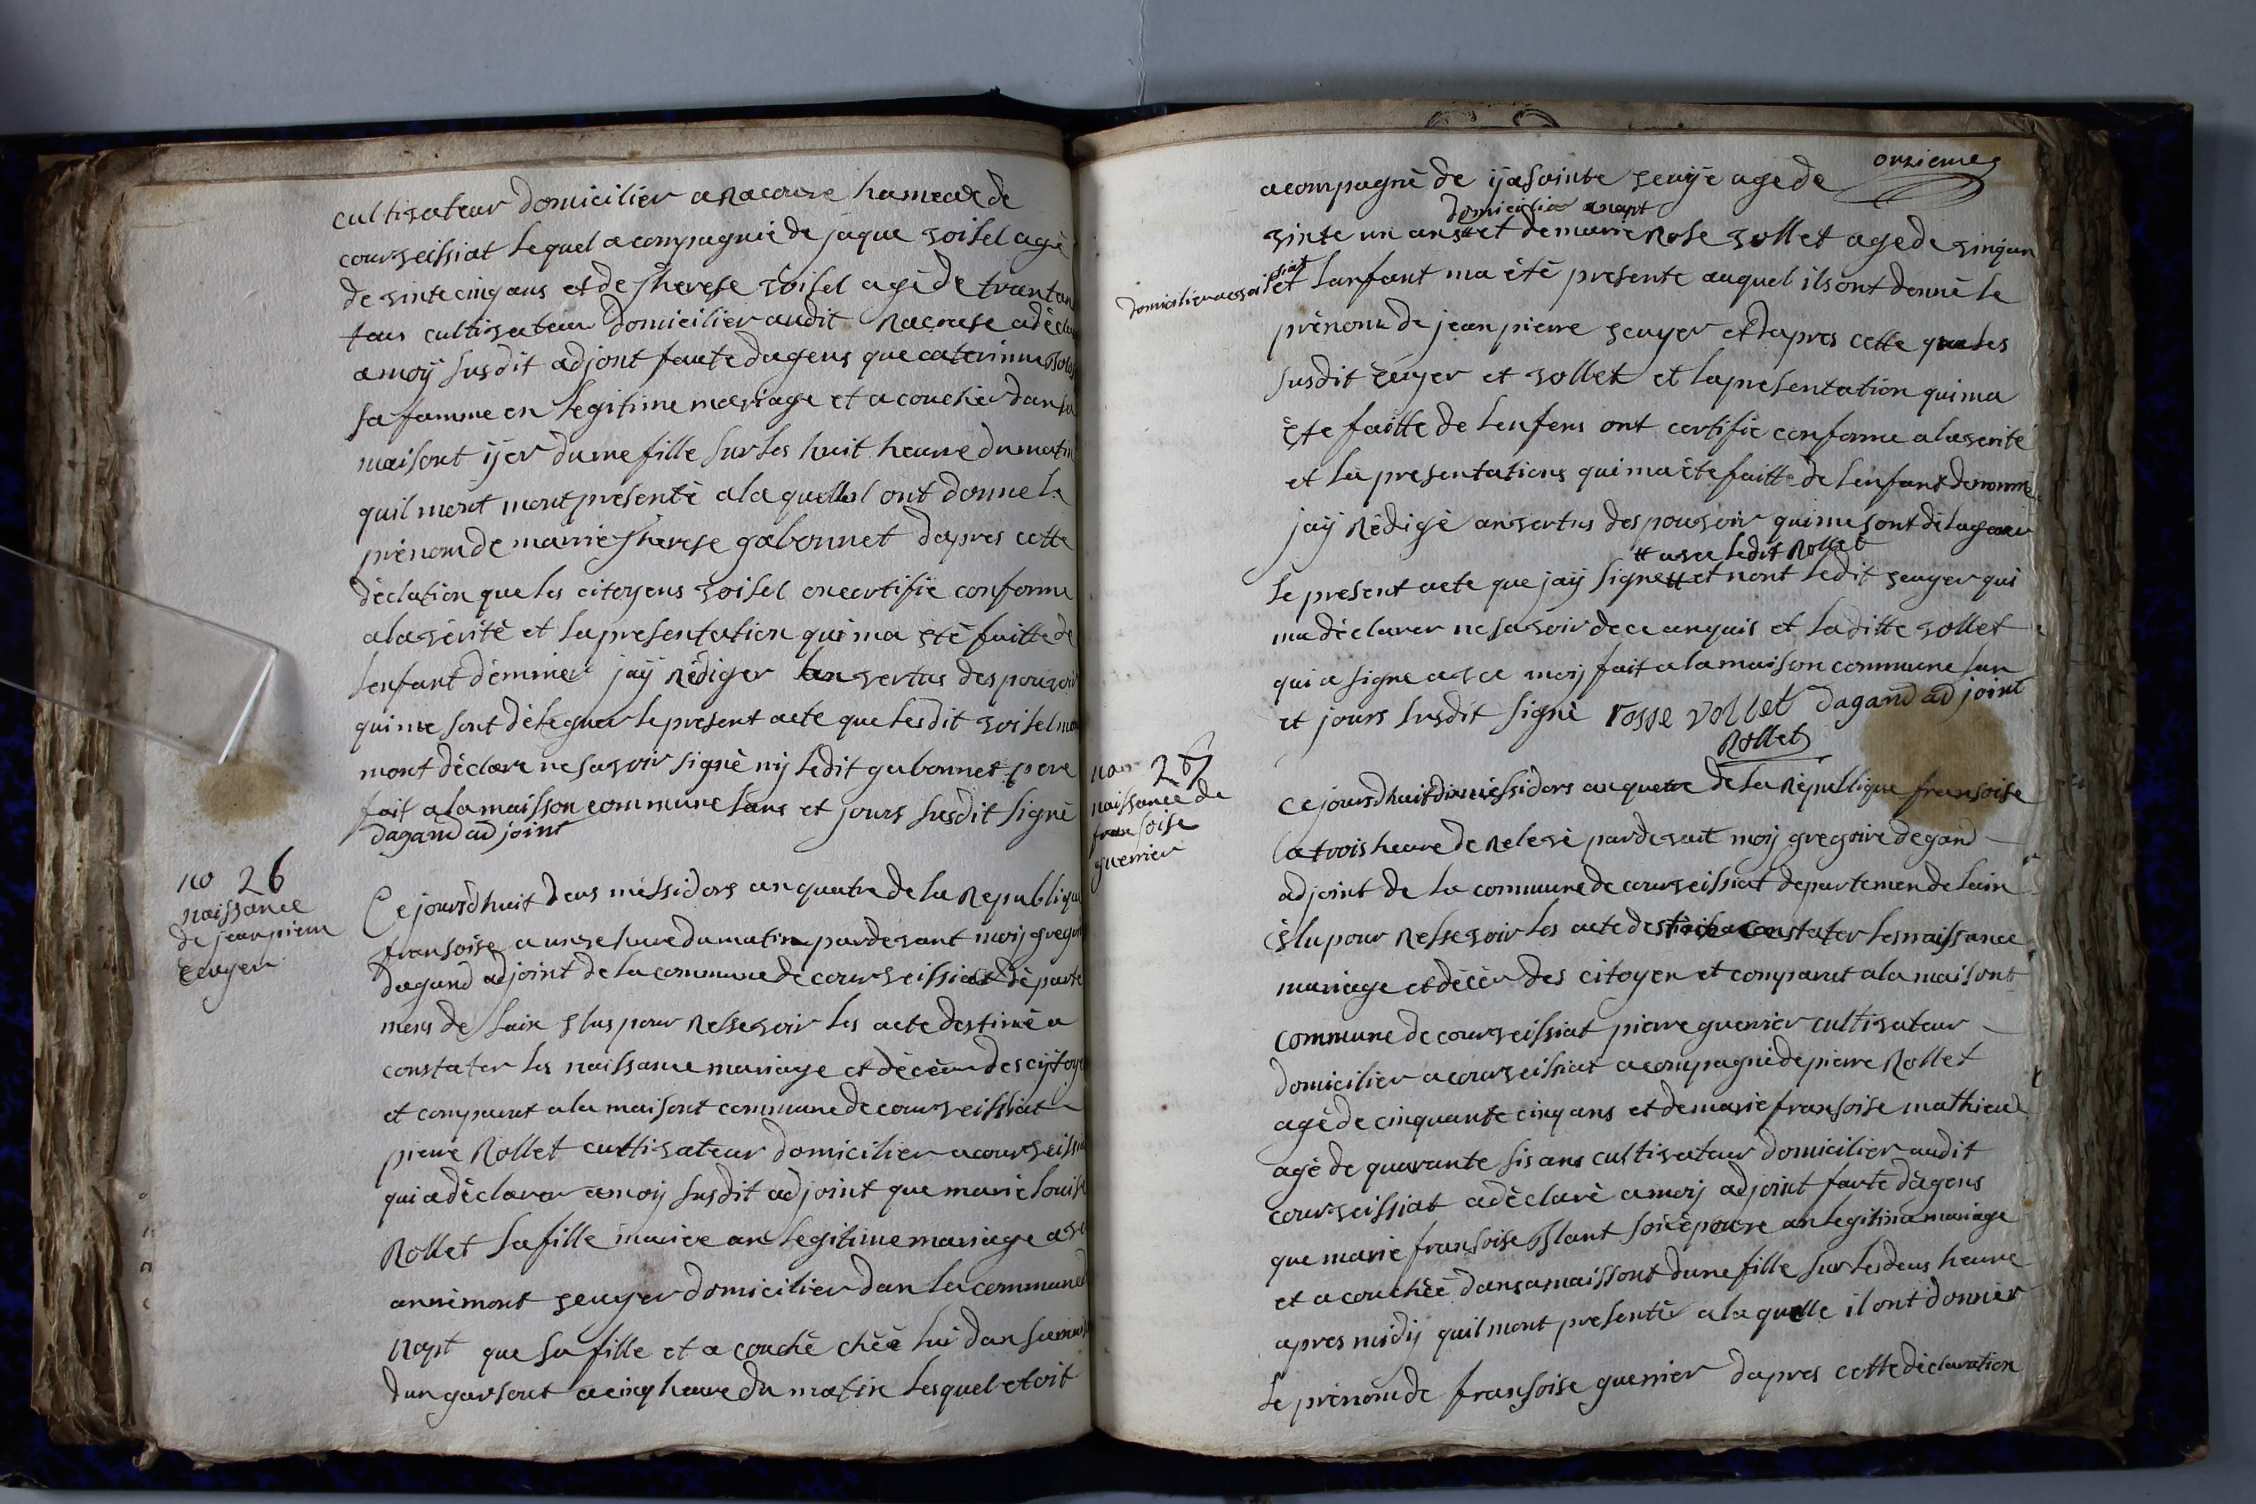 cultivateur domicilier a Racouse hameau de
courveissiat lequel acompagnié de jaque voisel agé
de vinte cinq ans et de therese voisel agé de trant an
tous cultivateur domicilier audit Racouse a déclaré
a moÿ susdit adjont faute dagens que caterinne
sa famme en legitime mariage et a couchér dan sa
maisont ÿer dune fille sur les huit heure du matin
quil mont mont presenté a la quelle il ont donne le
prénom de marrie therese gabonnet dapres cette
déclation que les citoyens voisel on certifié conforme
a la vérité et la presentation qui ma été faitte de
lenfant démmer jaÿ Rédiger en vertus des pouvoir
qui me sont déleguer le present acte que lesdit voisel
mont déclare ne savoir signé nÿ ledit gabonnet pere
fait a la maisson commune lans et jours susdit signé
dagand adjoint
no 26
naissance
de jean pierre
seuyer
Ce jours dhuit deus méssidors an quatre de la Republique
fransoise a unze heure du matin pardevant moÿ gregoire
dagand adjoint de la commune de courveissiat départe
mens de lain élus pour Ressevoir les acte destiné a
constater les naissance mariage et décèr des cÿtoyen
et comparut a la maisont commune de courveissiat
pierre Rollet cultivateur domicilier a courveissiat
qui a déclarer a moÿ susdit adjoint que marie louise
Rollet sa fille mariée an legitime mariage avec
annémont seuyer domicilier dan la commune
napt que sa fille et a couché chéé lui dan sa maison
dun garsont a cinq heure du matin lesquel etoit
onzieme
acompagné de ÿasointe seuÿé age de
domicilier a napt
vinte un ans et de marie Rose vollet age de vingt an
domicilier a corveissiat
et lanfant ma été presente auquel ils ont donné le
prénom de jean pierre seuyer et dapres cette que les
susdit seuyer et vollet et la presentation qui ma
éte faitte de lenfens ont certifié conforme a la verité
et la presentations qui ma éte faitte de lenfant denommé
jaÿ Rédigé an vertus des pouvoir qui me sont délaguer
# avec ledit Rollet
le present acte que jaÿ signe # et nont ledit seuyer qui
ma déclarer ne savoir de ce anquis et laditte vollet
qui a signe avec moÿ fait a la maison commune lan
et jours susdit signé rosse vollet dagand adjoint
Rollet
no 27
naissance de
fransoise
guerrier
Ce jours dhuit dix méssidors an quatre de la Républlique fransoise
a trois heure de Relevé pardevant moÿ gregoire dagand
adjoint de la commune de courveissiat departemen de lain
élu pour Ressevoir les acte destiné a constater les naissance
mariage et décèr des citoyen et comparut a la maisont
commune de courveissiat pierre guerrier cultivateur
domicilier a courveissiat acompagné de pierre Rollet
agé de cinquante cinq ans et de marie fransoise mathieu
agé de quarante sis ans cultivateur domicilier audit
courveissiat a déclaré a moÿ adjoint faute dagens
que marie fransoise Blant son épouse an legitima mariage
et a couchéé dans a maissont dune fille sur les deus heure
apres midÿ quil mont presentér a la quelle il ont donnér
le prénom de fransoise guerrier dapres cette déclaration